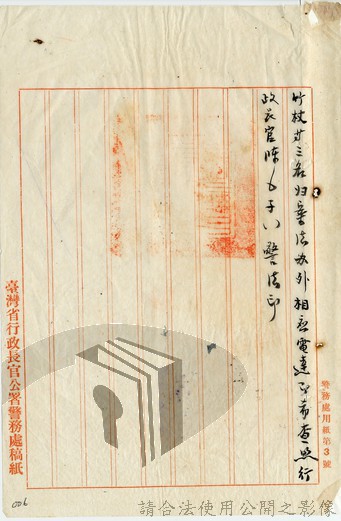 警務處用紙第3號
竹杖等三名归案法办外相应電達即希查照行
政長官陳〇子〇警法印
臺灣省行政長官公署警務處稿紙
006
請合法使用公開之影像